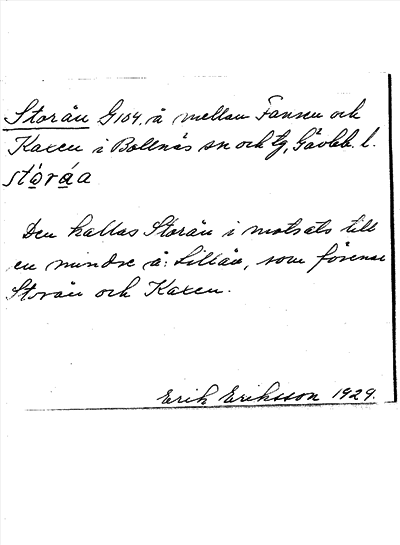 Storån G104, å mellan Fansen och
Kaxen i Bollnäs sn och tg, Gävleb. l.
stòráa
Den kallas Storån i motsats till
en mindre å: Lillån, som förenar
Storån och Kaxen.
Erik Eriksson 1929.